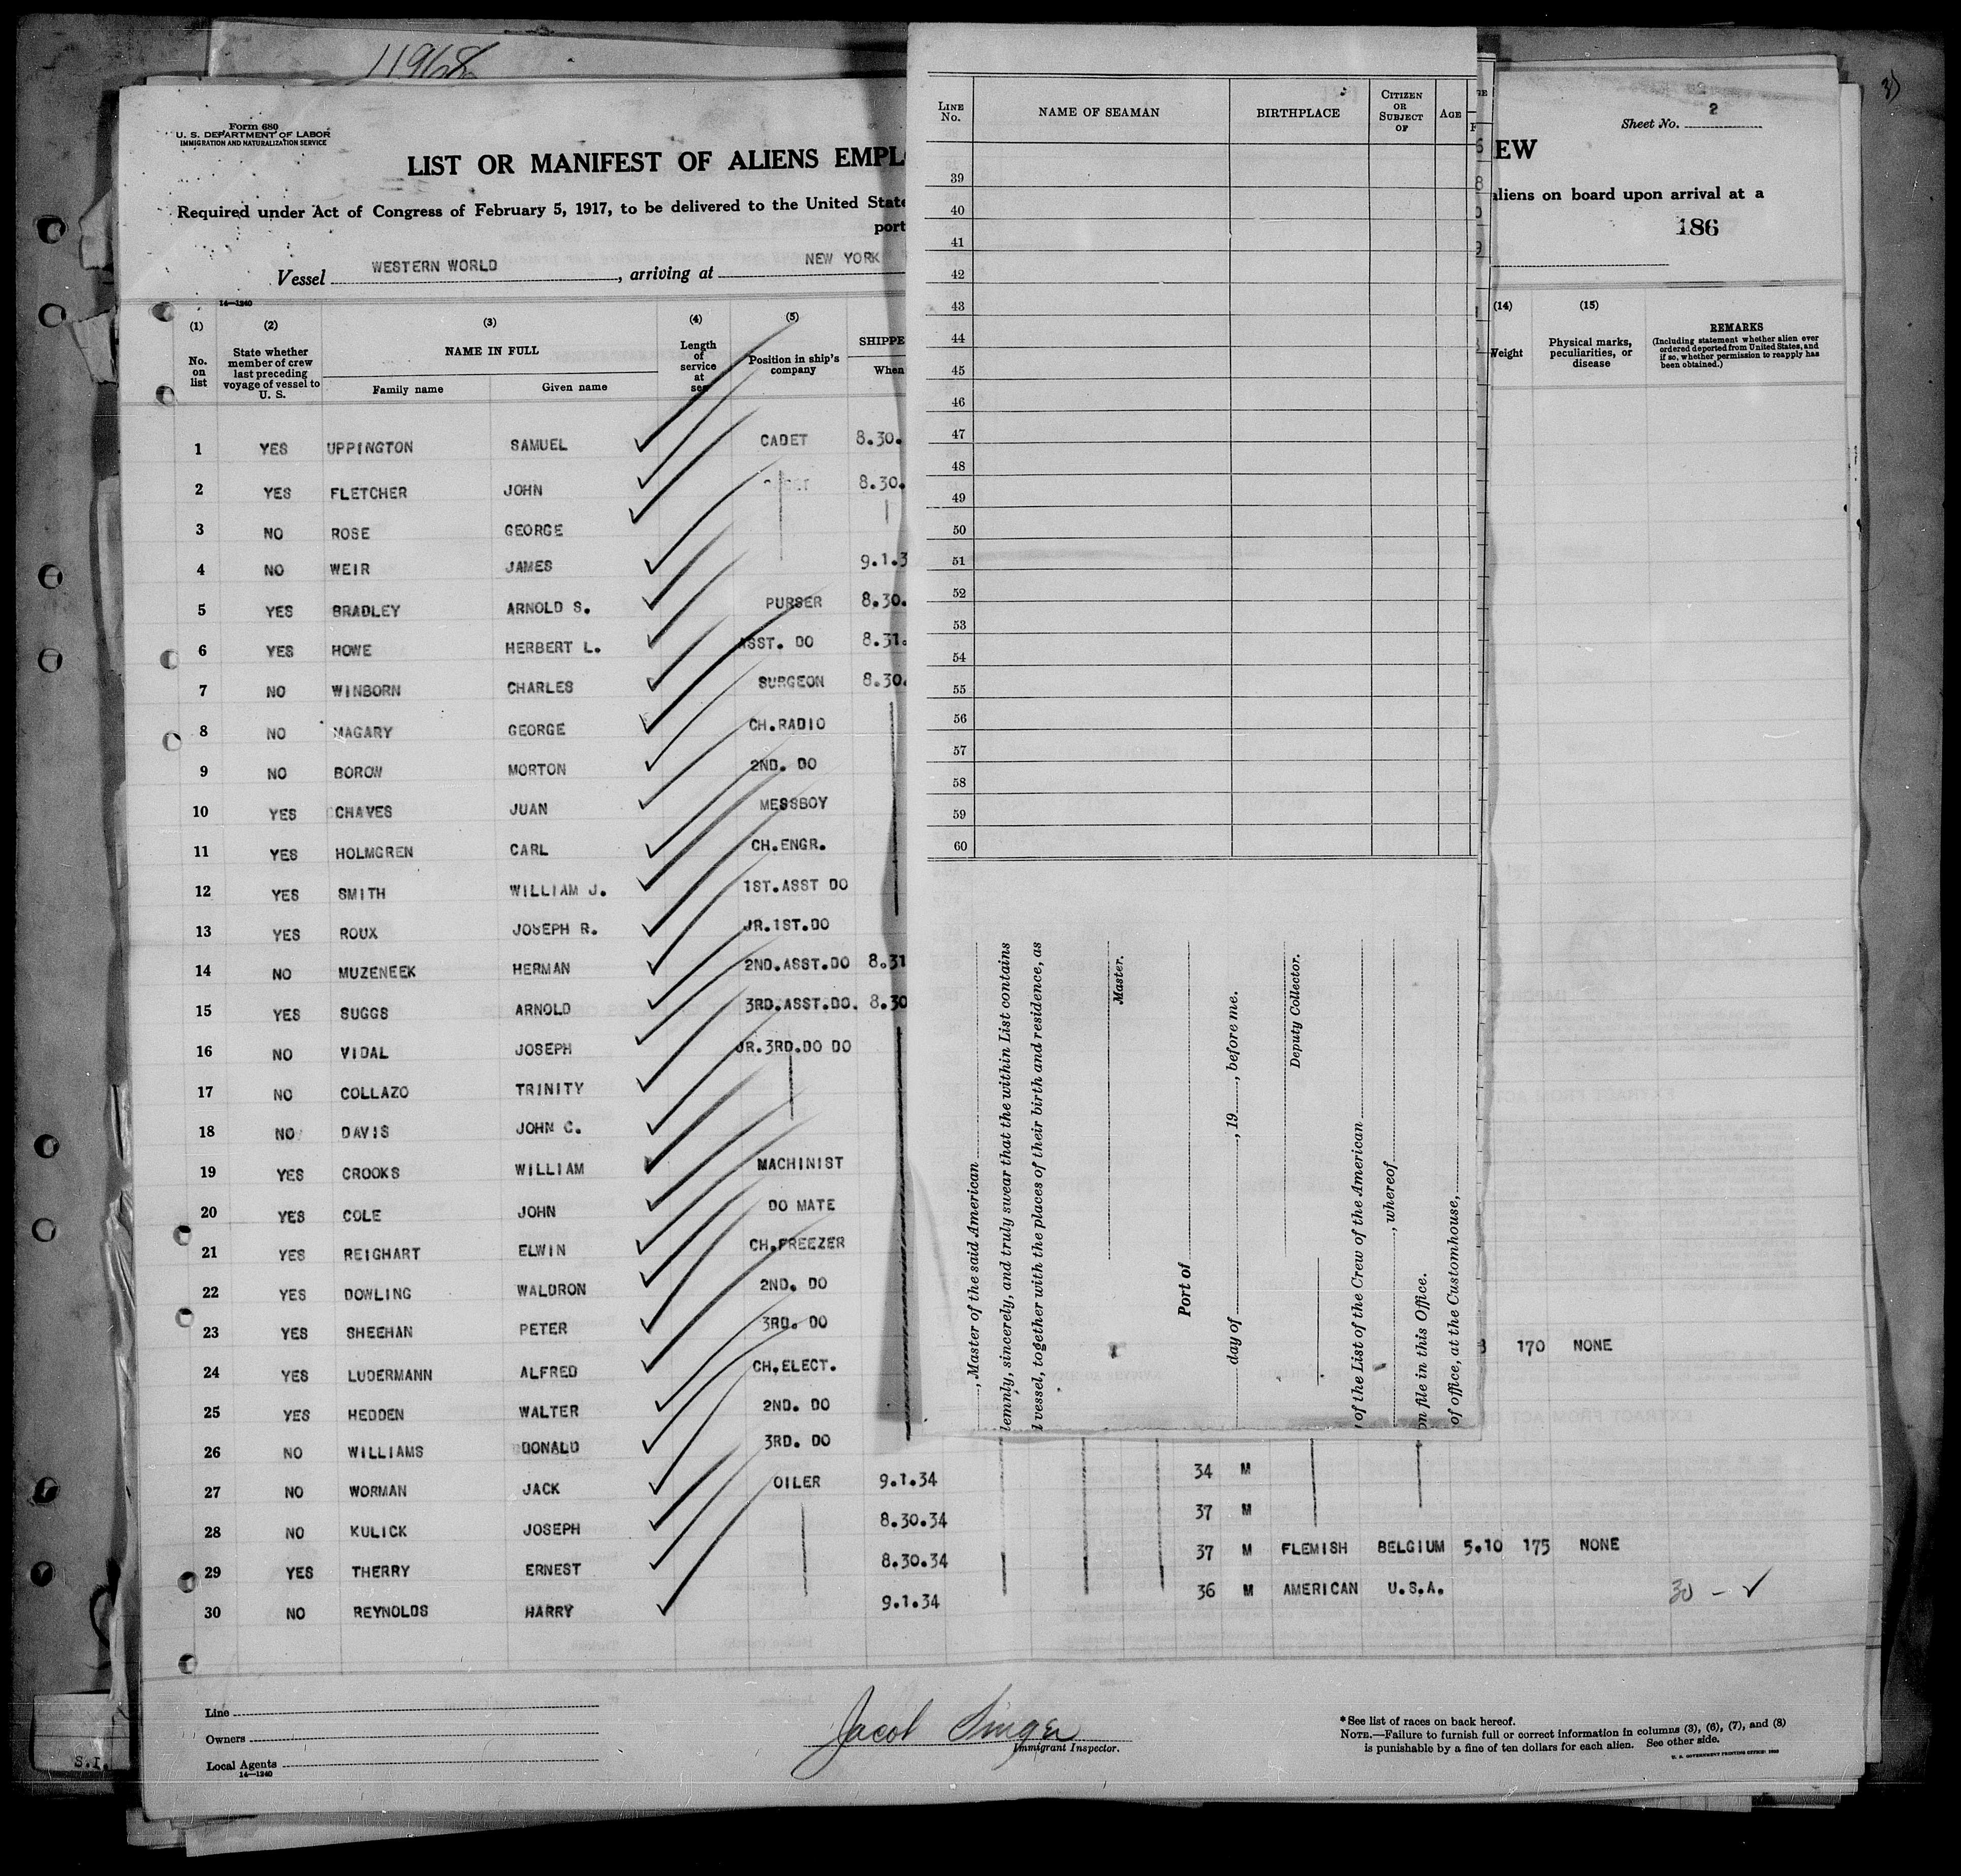 11968
Form 680
U. S. DEPARTMENT OF LABOR
IMMIGRATION AND NATURALIZATION SERVICE
Sheet No. 2
LIST OR MANIFEST OF ALIENS EMPL
EW
Required under Act of Congress of February 5, 1917, to be delivered to the United State
aliens on board upon arrival at a
port
186
Vessel WESTERN WORLD, arriving at NEW YORK
14—1240
(1) (2) (3) (4) (5) (14) (15)
No. on list
State whether member of crew last preceding voyage of vessel to U. S.
NAME IN FULL
Family name Given name
Length of service at sea
Position in ship's company
SHIPPE
When
Weight
Physical marks, peculiarities, or disease
REMARKS
(Including statement whether alien ever ordered deported from United States, and if so, whether permission to reapply has been obtained.)
1 YES UPPINGTON SAMUEL CADET 8.30.
2 YES FLETCHER JOHN 8.30.
3 NO ROSE GEORGE
4 NO WEIR JAMES 9.1.3
5 YES BRADLEY ARNOLD S. PURSER 8.30.
6 YES HOWE HERBERT L. ASST. DO 8.31.
7 NO WINBORN CHARLES SURGEON 8.30.
8 NO MAGARY GEORGE CH.RADIO
9 NO BOROW MORTON 2ND. DO
10 YES CHAVES JUAN MESSBOY
11 YES HOLMGREN CARL CH.ENGR.
12 YES SMITH WILLIAM J. 1ST.ASST DO
13 YES ROUX JOSEPH R. JR.1ST.DO
14 NO MUZENEEK HERMAN 2ND.ASST.DO 8.31
15 YES SUGGS ARNOLD 3RD.ASST.DO. 8.30
16 NO VIDAL JOSEPH JR.3RD.DO DO
17 NO COLLAZO TRINITY
18 NO DAVIS JOHN C.
19 YES CROOKS WILLIAM MACHINIST
20 YES COLE JOHN DO MATE
21 YES REIGHART ELWIN CH.FREEZER
22 YES DOWLING WALDRON 2ND. DO
23 YES SHEEHAN PETER 3RD. DO
24 YES LUDERMANN ALFRED CH.ELECT. 170 NONE
25 YES HEDDEN WALTER 2ND. DO
26 NO WILLIAMS DONALD 3RD. DO
27 NO WORMAN JACK OILER 9.1.34 34 M
28 NO KULICK JOSEPH 8.30.34 37 M
29 YES THERRY ERNEST 8.30.34 37 M FLEMISH BELGIUM 5.10 175 NONE
30 NO REYNOLDS HARRY 9.1.34 36 M AMERICAN U.S.A. 30 - ✓
Line
Owners
Local Agents
14—1240
Jacob Singer
Immigrant Inspector.
*See list of races on back hereof.
NOTE.—Failure to furnish full or correct information in columns (3), (6), (7), and (8)
is punishable by a fine of ten dollars for each alien. See other side.
S.I.
LINE No. NAME OF SEAMAN BIRTHPLACE CITIZEN OR SUBJECT OF AGE
39
40
41
42
43
44
45
46
47
48
49
50
51
52
53
54
55
56
57
58
59
60
, Master of the said American
lemnly, sincerely, and truly swear that the within List contains
l vessel, together with the places of their birth and residence, as
Master.
Port of
day of , 19 , before me.
Deputy Collector.
of the List of the Crew of the American
, whereof
on file in this Office.
of office, at the Customhouse,